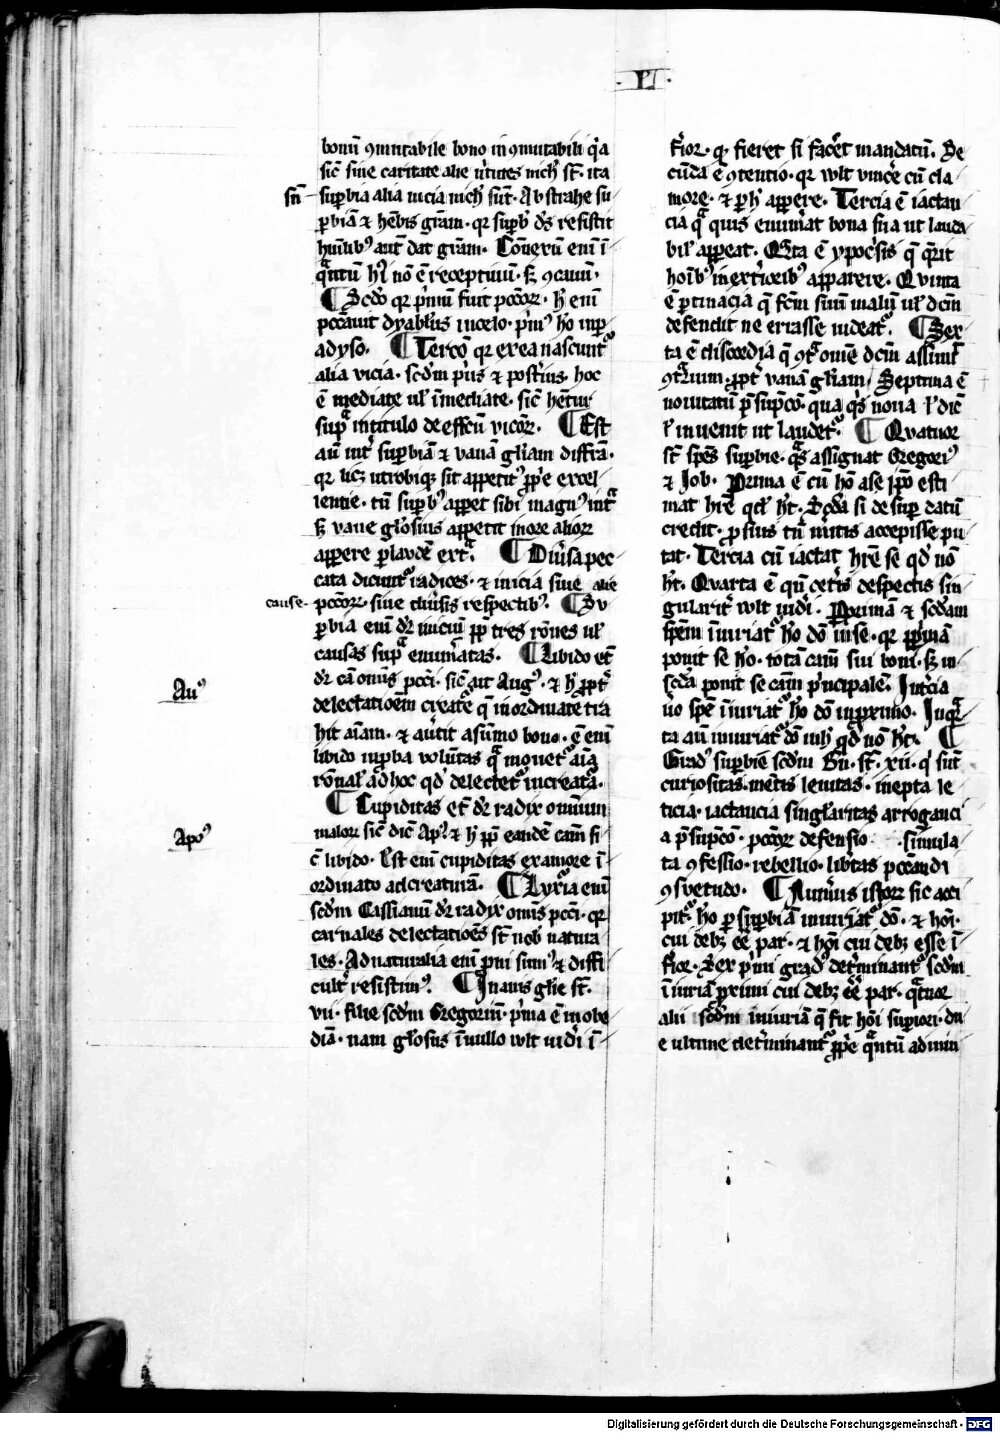 · VI ·
bonū ɔmutabile bono inɔmutabili q̄a
sic̄ sine caritate alie v̄tutes nich̄ st̄· ita
sn̄ suꝑbia alia uicia nich̄ sūt· Abstrahe su
ꝑbiā ⁊ hēbis gr̄am· qr suꝑb' ds̄ resistit
hūilib' aut̄ dat gr̄am· Cōnexū eni ī
q̄ntū hī nō ē receptiuū· ɔcauū·
¶ Scdō qr p̄mū fuit pccōꝝ· h̄ eni
peccauit dyabl'us in celo· p̄m' hō in ꝑ
adyso· ¶ Tercō qr ex ea nascunt'
alia vicia· scd̄m p̄us ⁊ post̄ius· hoc
ē mediate ul' īmediate· sic̄ hētur
sup̄ in titulo de effcū vicōꝝ· ¶ Est
aū int̄ suꝑbiā ⁊ vanā gl'iam diffrā·
qr licꝫ utrobiqꝫ sit appetit' ꝓp̄e excel
lentie· tn̄ suꝑb' appet sibi magn' int̄
vane glōsius appetit in ore alioꝝ
appere ꝑ laudē ext̄· ¶ Diūsa pec
cata dicunt' radices· ⁊ inicia siue alie
cause· pccōꝝ· siue diūsis respectib'· ¶ Su
ꝑbia eni dr̄ iniciū ꝓp̄ tres rōnes ul'
causas sup̄ enum̄atas· ¶ Libido et̄
dr̄ cā om̄is pcci· sic̄ ait Aug'· ⁊ h̄ ꝓpt̄
Au'
delectatioēm creatē q̄ inordinate tra
hit aīam· ⁊ au̅tit a sūmo bono· ē eni
libido inꝓba volūtas q̄ mouet' aīa
rōnal' ad hoc qd̄ delectet' in creatā·
¶ Cupiditas et̄ dr̄ radix omniun
maloꝝ sic̄ dic̄ Ap'· ⁊ h̄ ꝓp̄ eandē cām si
Apo'
c̄ libido· Est eni cupiditas ex amore ī
ordinato ad creaturā· ¶ Luxīa eni
scd̄m Cassianū dr̄ radix om̄is pcci· qr
carnales delectatioēs st̄ nob' natura
les· Ad naturalia eni ꝓni sum' ⁊ diffi
cult̄ resistim'· ¶ Inanis gl'ie st̄·
vii· filie scd̄m Gregoriū· p̄ma ē in obe
diā· nam glōsus ī nullo wlt uid̄i ī
f̄ior· q̄ fieret si facēt mandatū· Se
cūda ē ɔtentio· qr wlt vinc̄e cū cla
more· ⁊ ꝑ h̄ appere· Tercia ē iactan
cia q̄ quis enum̄at bona sua ut lauda
bil' appeat· Q̄rta ē ypoc̄sis q̄ q̄rit
hoīb' in ext̄iorib' apparere· Quinta
ē ꝑtinacia q̄ fcm̄ suū malū ul' dcm̄
defendit ne errasse uideat'· ¶ Sex
ta ē discordia q̄ ɔt̄ omē dcm̄ assumit
ɔt̄rium· ꝓpt̄ vanā gl'iam· Septima ē
nouitatū p̄supcō· qua q̄s noua l' dic̄
l' inuenit ut laudet'· ¶ Quatuor
st̄ spēs suꝑbie· q̄s assignat Gregori'
⁊ Job· Prima ē cū hō a se ip̄o esti
mat hr̄e qd̄ h̄t· Scd̄a si de suꝑ datū
credit· ꝓ suis tn̄ m̄itis accepisse pu
tat· Tercia cū iactat hr̄e se qd̄ nō
h̄t· Quarta ē qn̄ cet̄is despectis sin
gularit̄ wlt uid̄i· Primā ⁊ scd̄am
spēm īiuriat' hō dō in se· qr ꝓp̄ mā
ponit se hō· totā cām sui boni· in
scd̄a ponit se cām p̄ncipalē· In tc̄ia
ūo spē īiuriat' hō dō in ꝓximo· In q̄r
ta aū iniuriat' dō in h̄ qd̄ nō h̄t· ¶
Grad' suꝑbie scd̄m Bn̄· st̄· xii· q̄ sūt
curiositas· mētis leuitas· inepta le
ticia· iactancia singl'aritas arroganci
a p̄supcō· pccōꝝ defensio· simula
ta ɔfessio· rebellio· lib̄tas pccandi
ɔsuetudo· ¶ Num̄us istoꝝ sic acci
pit'· hō ꝑ suꝑbiā iniuriat' dō· ⁊ hōi·
cui debꝫ ēē par· ⁊ hōi cui debꝫ esse ī
fior· Sex p̄mi grad' det̄minant' scd̄m
īiuriā ꝓximi cui debꝫ ēē par· q̄tuor
alii scd̄m iniuriā q̄ fit hōi supiori· du
e ultime det̄minant' ꝓp̄e q̄ntū ad iniu